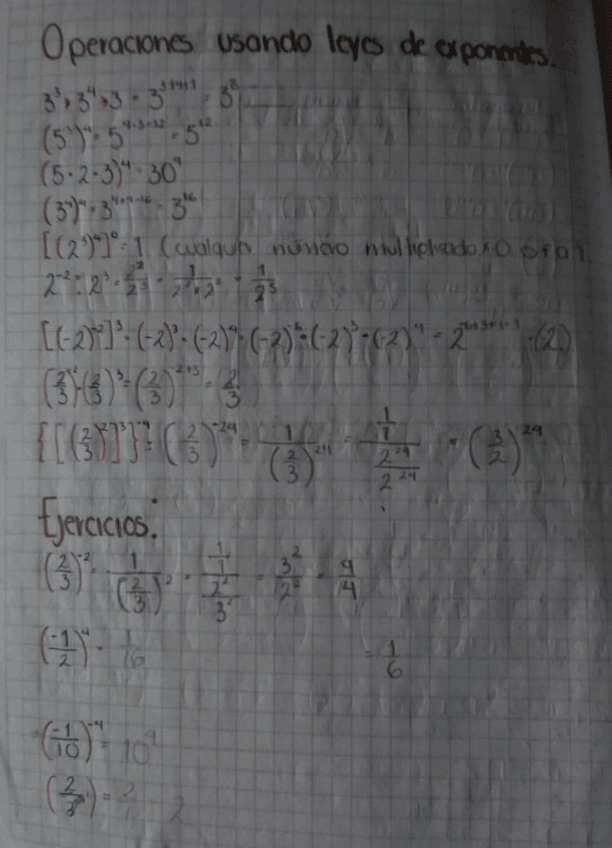 Operaciones usando leyes de exponentes.
3³ · 3⁴ · 3 = 3³⁺⁴⁺¹ = 3⁸
(5³)⁴ = 5⁴·³⁼¹² = 5¹²
(5 · 2 · 3)⁴ = 30⁴
(3⁴)⁴ = 3⁴ˣ⁴⁼¹⁶ = 3¹⁶
[(2³)⁴]⁰ = 1 (cualquier número multiplicado x 0 es
2⁻² ÷ 2³ = 2⁻²/2³ = 1/2²·2³ = 1/2⁵
[(-2)⁻²]³ · (-2)³ · (-2)⁴ = (-2)⁻⁶ · (-2)³ · (-2)⁴ = = (-2)
(2/3)⁻² · (2/3)³ = (2/3)⁻²⁺³ = 2/3
{[(2/3)²]³}⁻⁴ = (2/3)⁻²⁴ = 1/(2/3)²⁴ = 1/1/2²⁴/2²⁴ = (3/2)²⁴
Ejercicios:
(2/3)⁻² = 1/(2/3)² = 1/1/2²/3² = 3²/2² = 9/4
(-1/2)⁴ = 1/16 = 1/6
(-1/10)⁻⁴ = 10⁴
= 2/1 = 2